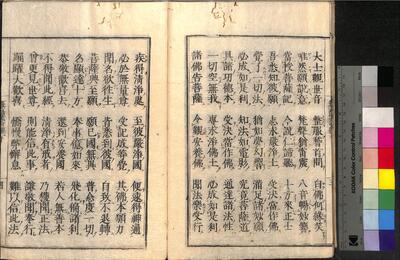 大士觀世音　整服稽首問　白佛何緣笑
唯然願說意　梵聲猶雷震　八音暢妙響
當授菩薩記　今說仁諦聽　十方來正士
吾悉知彼願　志求嚴淨土　受決當作佛
覺了一切法　猶如夢幻響　滿足諸妙願
必成如是刹　知法如電影　究竟菩薩道
具諸功德本　受決當作佛　通達諸法性
一切空無我　專求淨佛土　必成如是刹
諸佛告菩薩　令覲安養佛　聞法樂受行
疾得清淨處　至彼嚴淨國　便速得神通
必於無量尊　受記成等覺　其佛本願力
聞名欲往生　皆悉到彼國　自致不退轉
菩薩興至願　願己國無異　普念度一切
名顯達十方　奉事億如來　飛化徧諸刹
恭敬歡喜去　還到安養國　若人無善本
不得聞此經　清淨有戒者　乃獲聞正法
曾更見世尊　則能信此事　謙敬聞奉行
踊躍大歡喜　憍慢弊懈怠　難以信此法